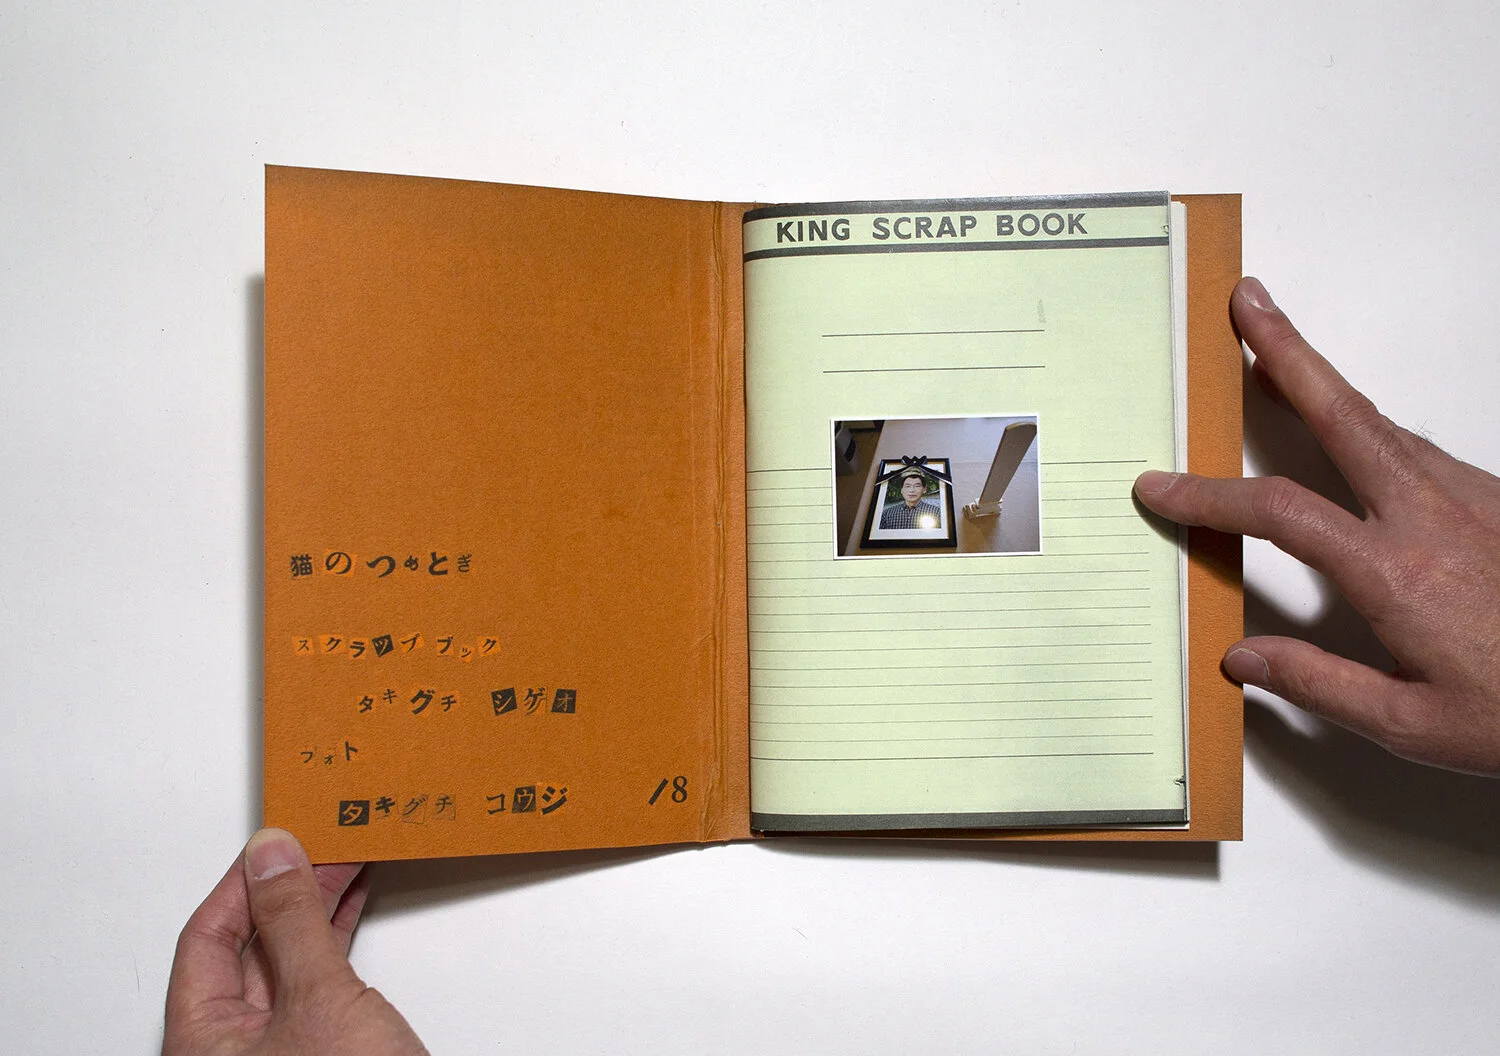 猫のつめとぎ
スクラップブック
タキグチ シゲオ
フォト
タキグチ コウジ
/8
KING SCRAP BOOK